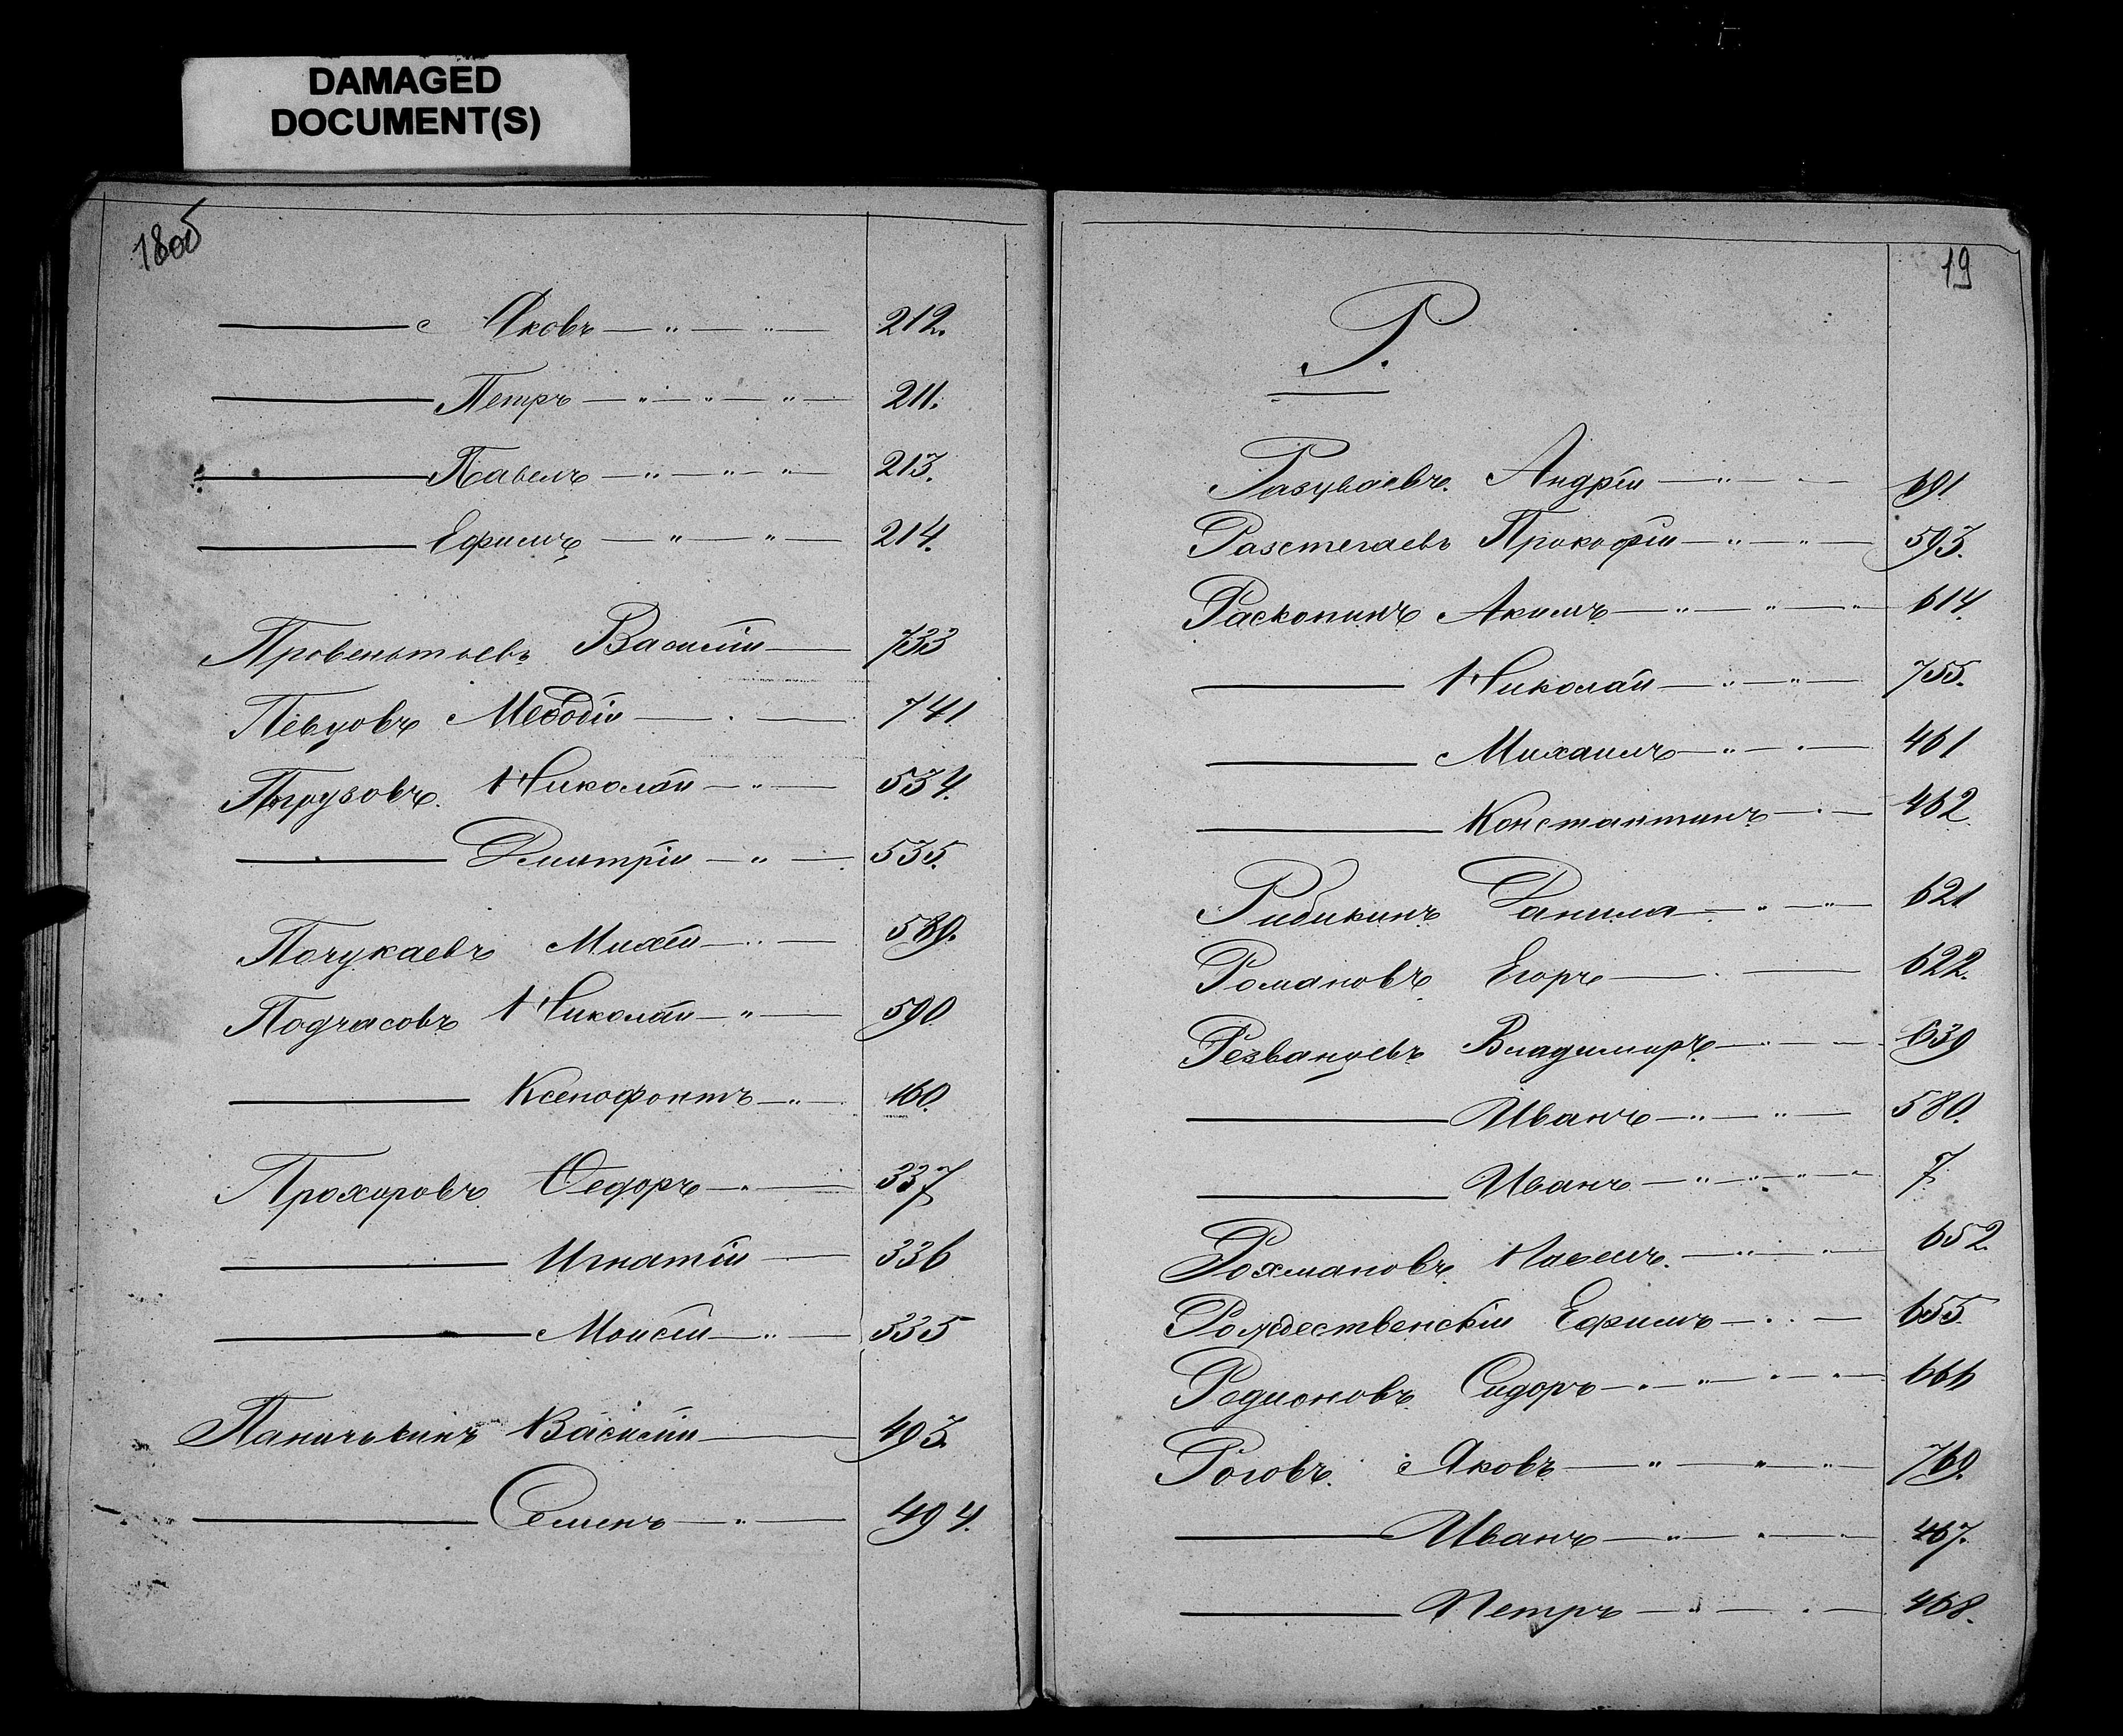 DAMAGED
DOCUMENT(S)
18об
Яковъ 212.
Петръ 211.
Павелъ 213.
Ефимъ 214.
Василій 733
Певцовъ Меѳодій 741
Николай 534.
Дмитрій 535.
Почукаевъ Михей 589.
Подчасовъ Николай 590
Ксенофонтъ 160.
Прохоровъ Ѳедоръ 337
Игнатій 336
Моисей 335
Паничькинъ Василій 493.
Семенъ 494.
19
Р.
Разуваевъ Андрей 691
Разстегаевъ Прокофій 593.
Раскопинъ Акимъ 614.
Николай 755.
Михаилъ 461
Константинъ 462
Рибикинъ Данила 621
Романовъ Егоръ 622.
Резванцевъ Владимиръ 639
Иванъ 580.
Иванъ 7
Рохмановъ Павелъ 652.
Рождественскій Ефимъ 655.
Редионовъ Сидоръ 666
Роговъ Яковъ 769.
Иванъ 467.
Петръ 468.